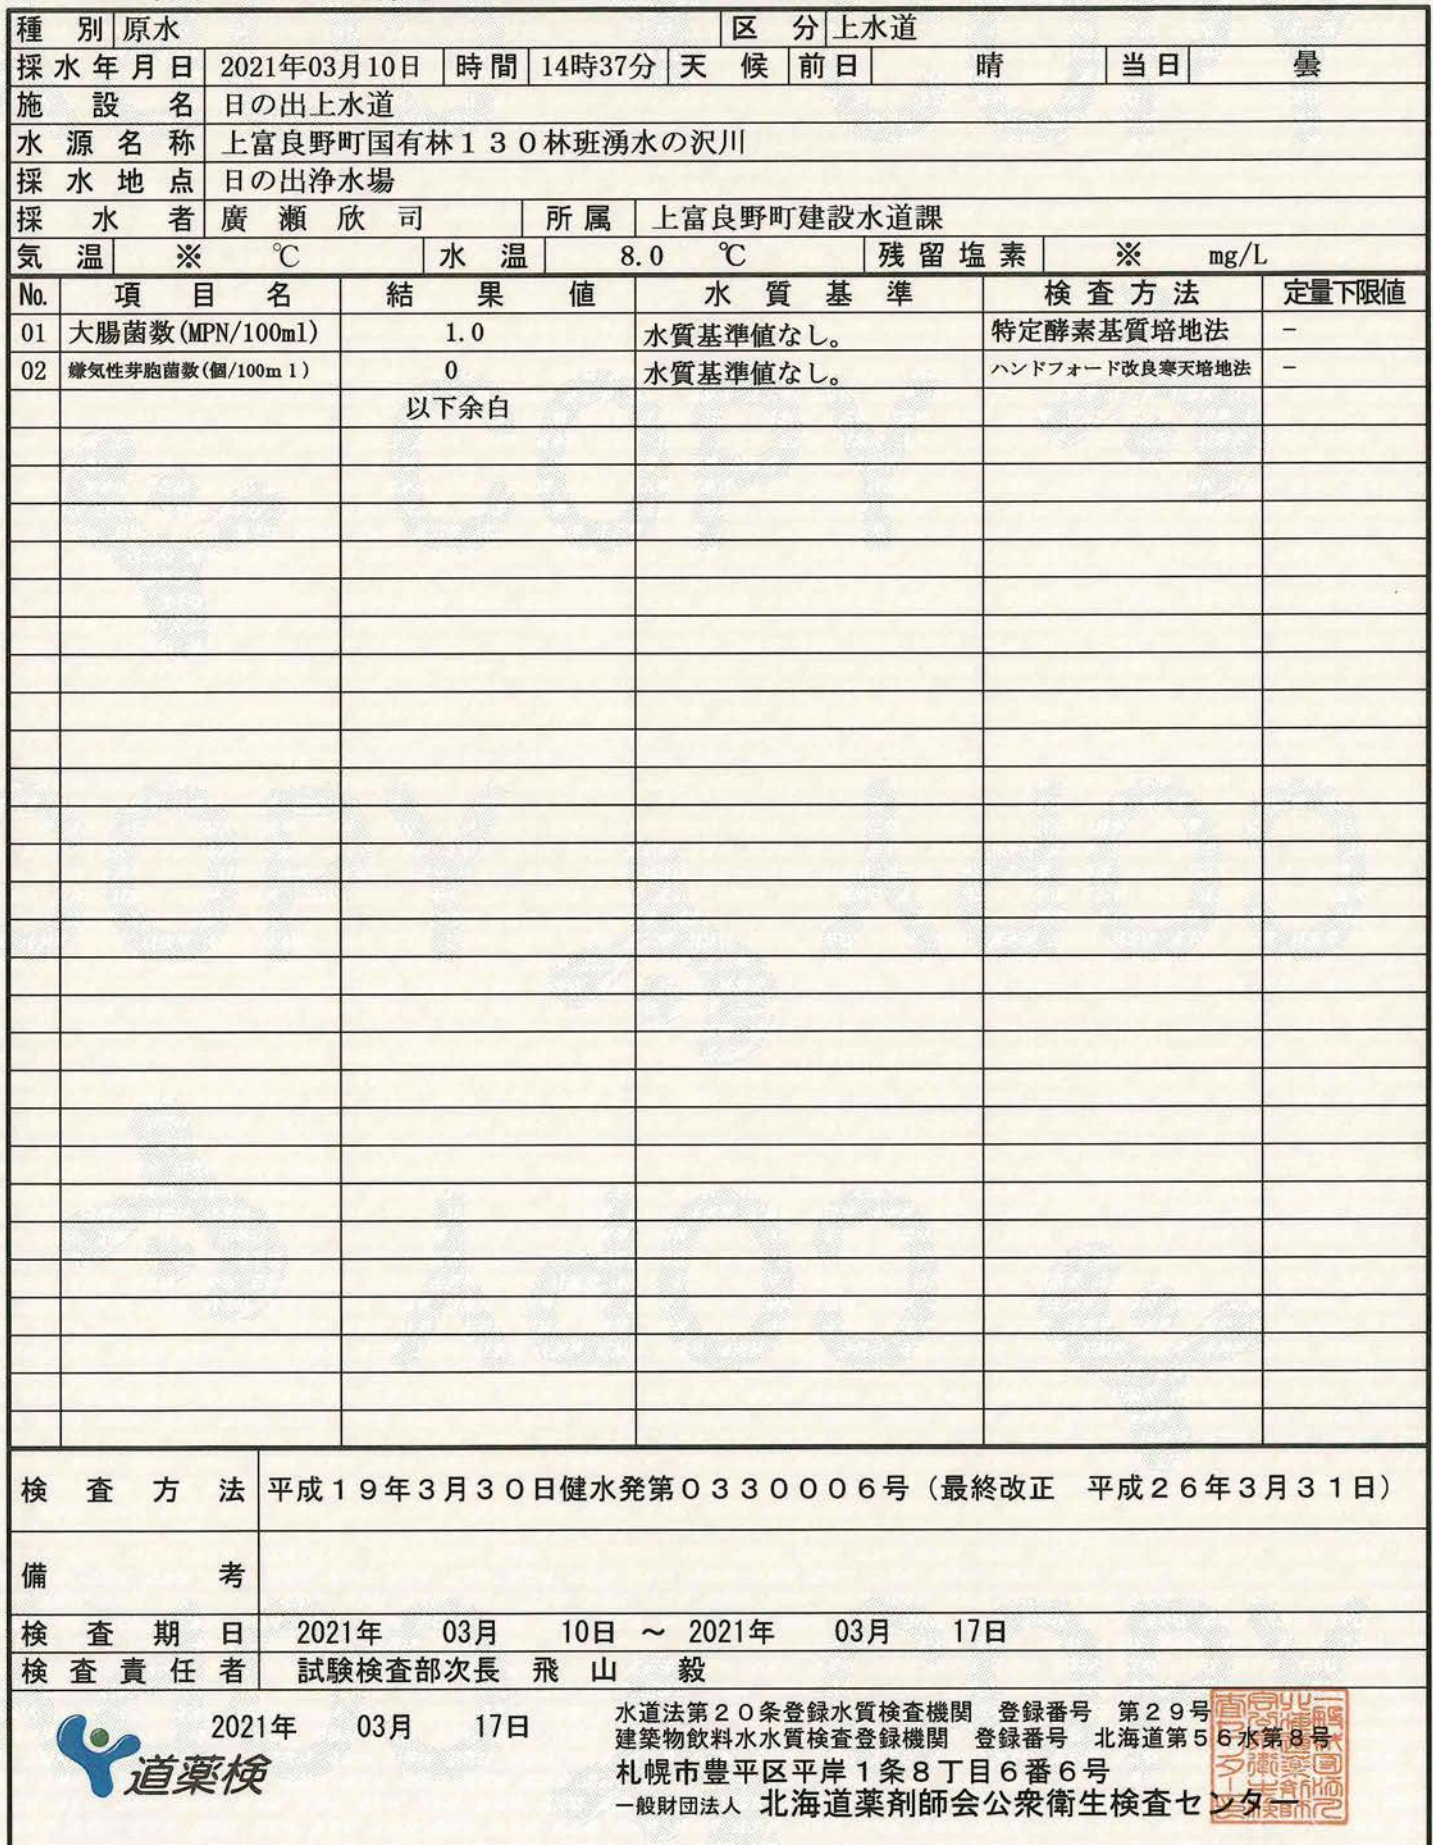 種 別 原水 区 分 上水道
採水年月日 2021年03月10日 時間 14時37分 天 候 前日 晴 当日 曇
施 設 名 日の出上水道
水 源 名 称 上富良野町国有林１３０林班湧水の沢川
採 水 地 点 日の出浄水場
採 水 者 廣 瀬 欣 司 所属 上富良野町建設水道課
気 温 ※ ℃ 水 温 8.0 ℃ 残留塩素 ※ mg/L
No. 項 目 名 結 果 値 水 質 基 準 検 査 方 法 定量下限値
01 大腸菌数(MPN/100ml) 1.0 水質基準値なし。 特定酵素基質培地法 －
02 嫌気性芽胞菌数(個/100ｍｌ) 0 水質基準値なし。 ハンドフォード改良寒天培地法 －
以下余白
COPY
検 査 方 法 平成１９年３月３０日健水発第０３３０００６号（最終改正　平成２６年３月３１日）
備 考
検 査 期 日 2021年 03月 10日 ～ 2021年 03月 17日
検 査 責 任 者 試験検査部次長 飛 山 毅
2021年 03月 17日
道薬検
水道法第２０条登録水質検査機関　登録番号　第２９号
建築物飲料水水質検査登録機関　登録番号　北海道第５６水第８号
札幌市豊平区平岸１条８丁目６番６号
一般財団法人 北海道薬剤師会公衆衛生検査センター